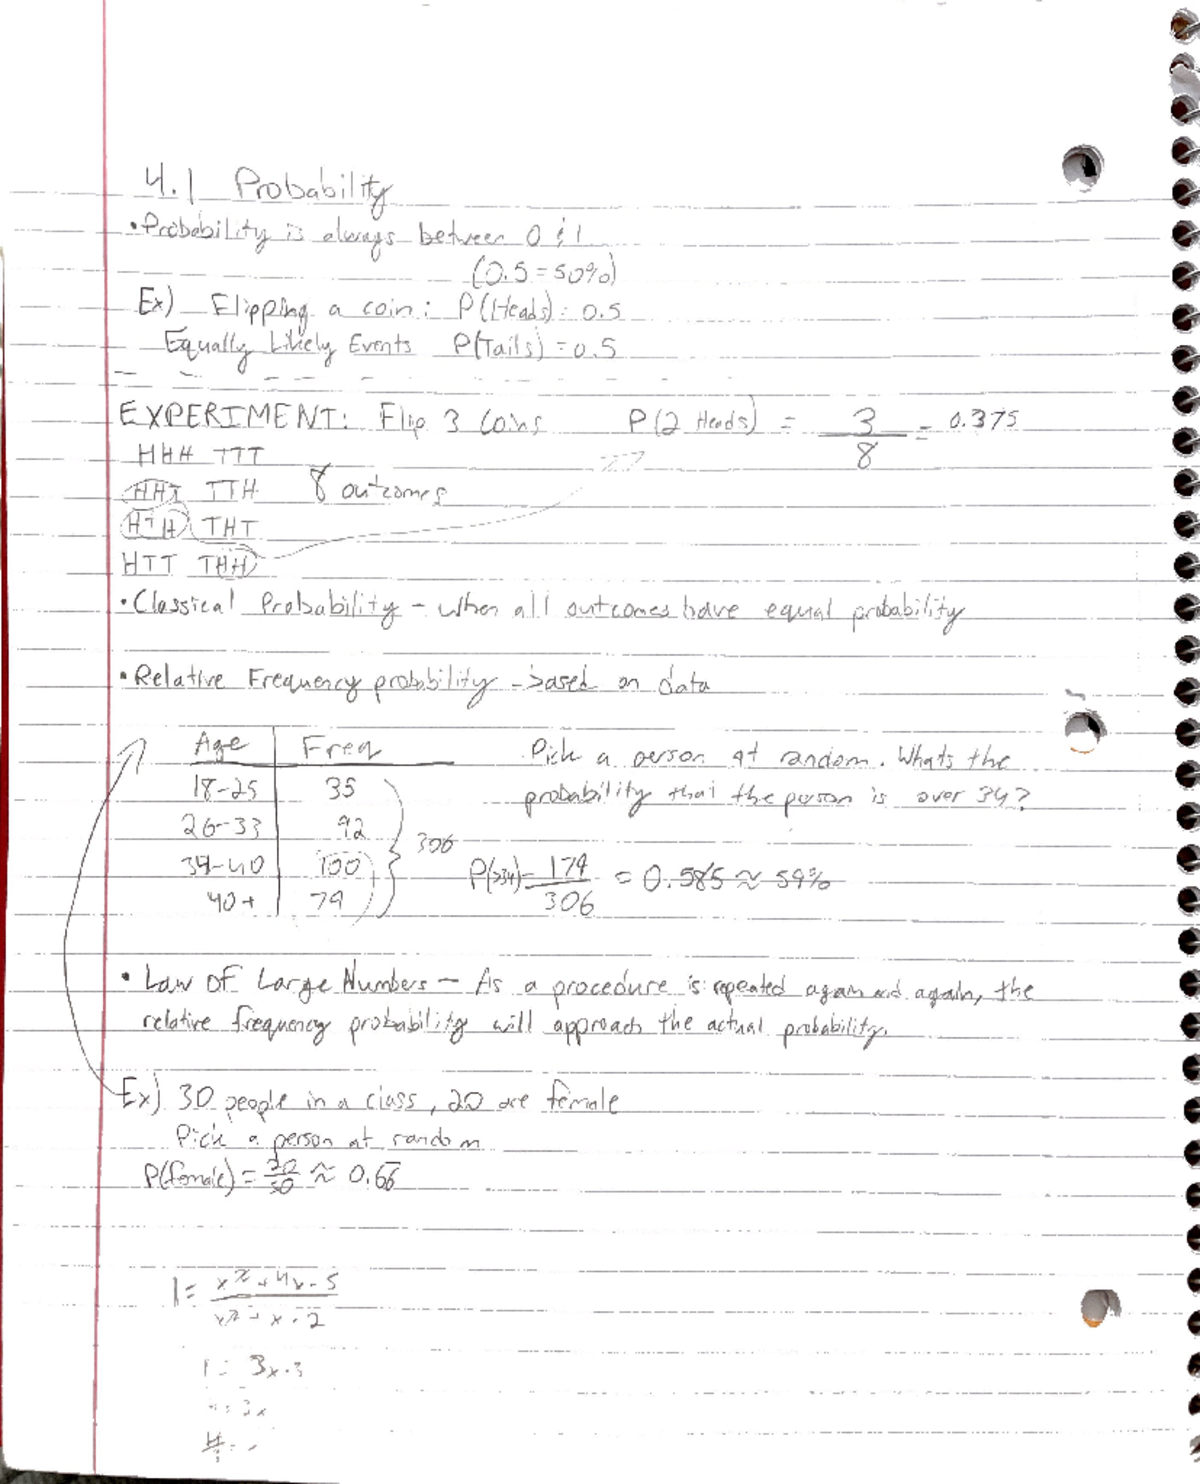 4.1 Probability
• Probability is always between 0 & 1
(0.5 = 50%)
Ex) Flipping a coin: P(Heads) = 0.5
Equally Likely Events P(Tails) = 0.5
EXPERIMENT: Flip 3 Coins P(2 Heads) = 3/8 = 0.375
HHH TTT
HHT TTH 8 outcomes
HTH THT
HTT THH
• Classical Probability - when all outcomes have equal probability
• Relative Frequency probability - based on data
Age Freq
18-25 35
26-33 92
34-40 100
40+ 79
306
Pick a person at random. Whats the
probability that the person is over 34?
P(>34) = 179/306 = 0.585 ≈ 59%
• Law of Large Numbers - As a procedure is repeated again and again, the
relative frequency probability will approach the actual probability.
Ex) 30 people in a class, 20 are female
Pick a person at random
P(female) = 20/30 ≈ 0.66
1 =
1 = 3x